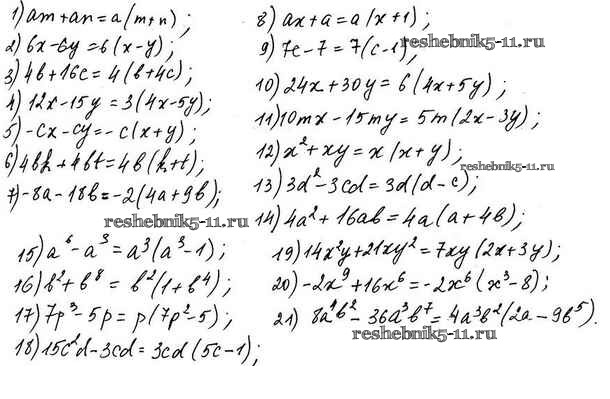 1) am+an=a(m+n);
2) 6x-6y=6(x-y);
3) 4b+16c=4(b+4c);
4) 12x-15y=3(4x-5y);
5) -cx-cy=-c(x+y);
6) 4bk+4bt=4b(k+t);
7) -8a-18b=-2(4a+9b);
8) ax+a=a(x+1);
9) 7c-7=7(c-1);
reshebnik5-11.ru
10) 24x+30y=6(4x+5y);
11) 10mx-15my=5m(2x-3y);
12) x²+xy=x(x+y);
reshebnik5-11.ru
13) 3d²-3cd=3d(d-c);
14) 4a²+16ab=4a(a+4b);
reshebnik5-11.ru
15) a⁶-a³=a³(a³-1);
16) b²+b⁸=b²(1+b⁴);
17) 7p³-5p=p(7p²-5);
18) 15c²d-3cd=3cd(5c-1);
19) 14x²y+21xy²=7xy(2x+3y);
20) -2x⁹+16x⁶=-2x⁶(x³-8);
21) 8a⁴b²-36a³b⁷=4a³b²(2a-9b⁵).
reshebnik5-11.ru